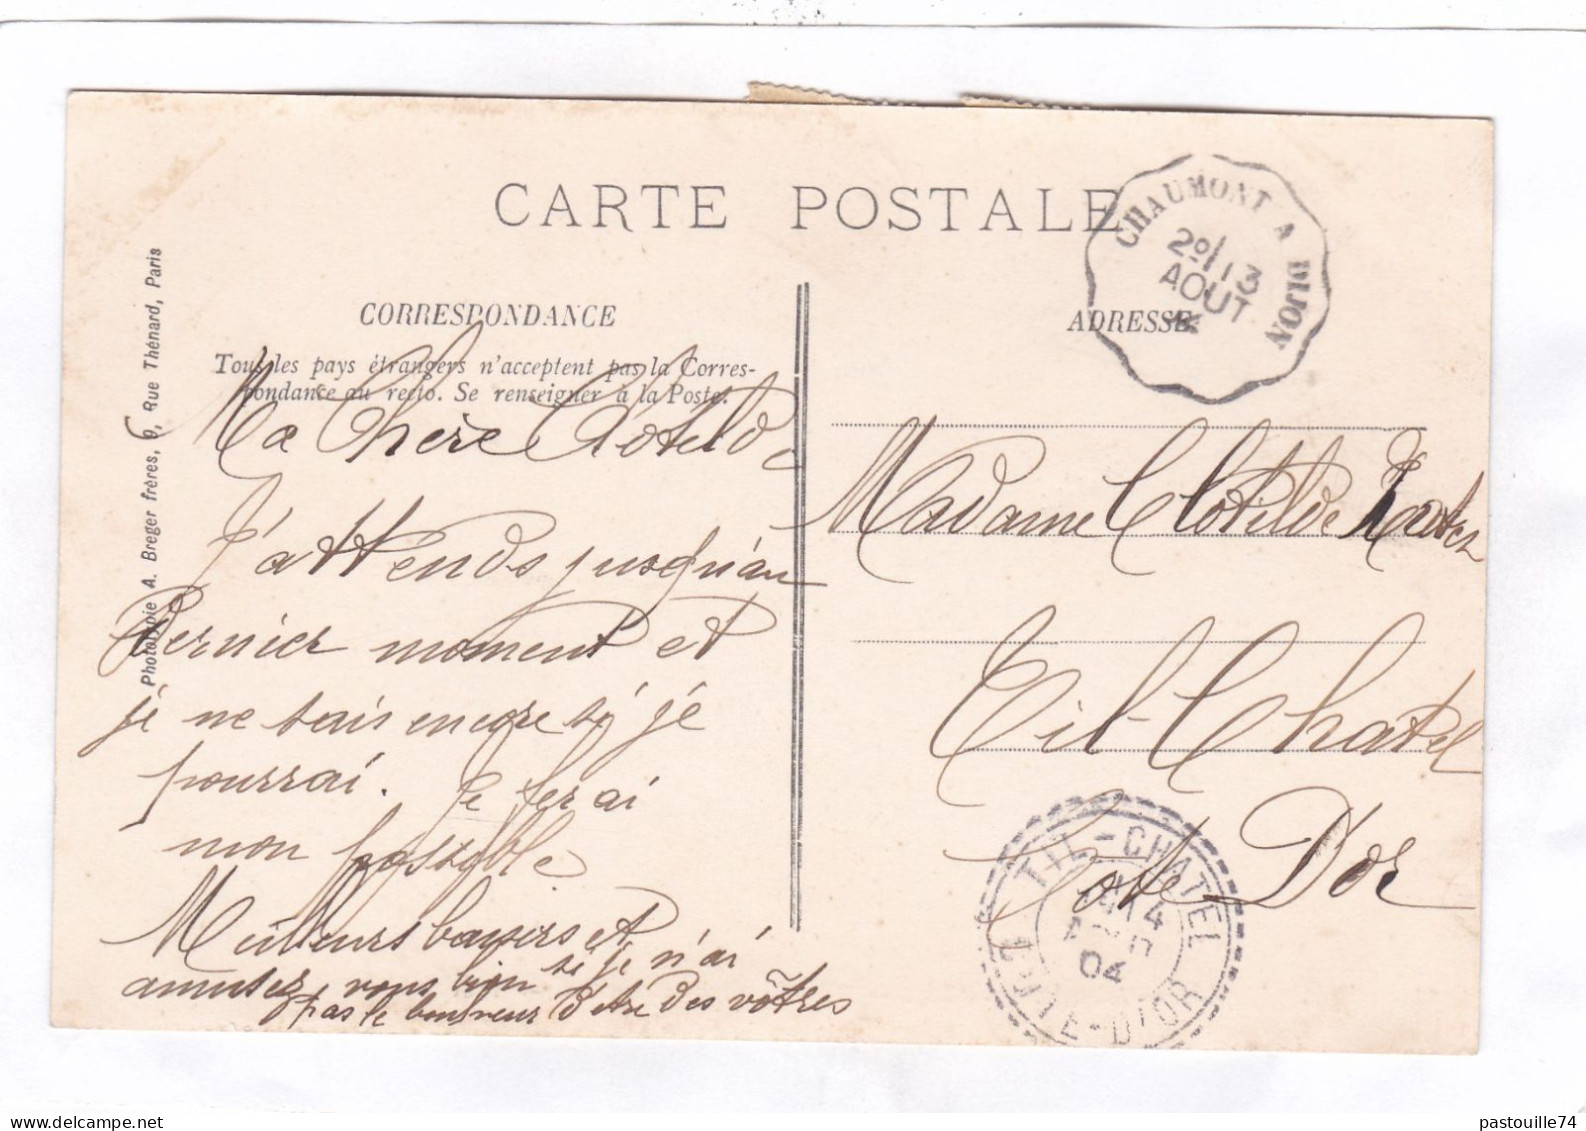 CARTE POSTALE
CHAUMONT A DIJON
2º/13
AOUT
CORRESPONDANCE
ADRESSE
Tous les pays étrangers n'acceptent pas la Corres-
pondance au recto. Se renseigner à la Poste.
Phototypie A. Breger frères, 9, Rue Thénard, Paris
Ma Chère Clotilde
J'attends jusqu'au
Dernier moment et
je ne sais encore si je
pourrai. Je ferai
mon possible
Meilleurs baisers et
amusez vous bien si je n'ai
pas le bonheur d'etre des vôtres
Madame Clotilde
Til-Chatel
Cote D'or
TIL-CHATEL
14
04
COTE-D'OR
pastouille74